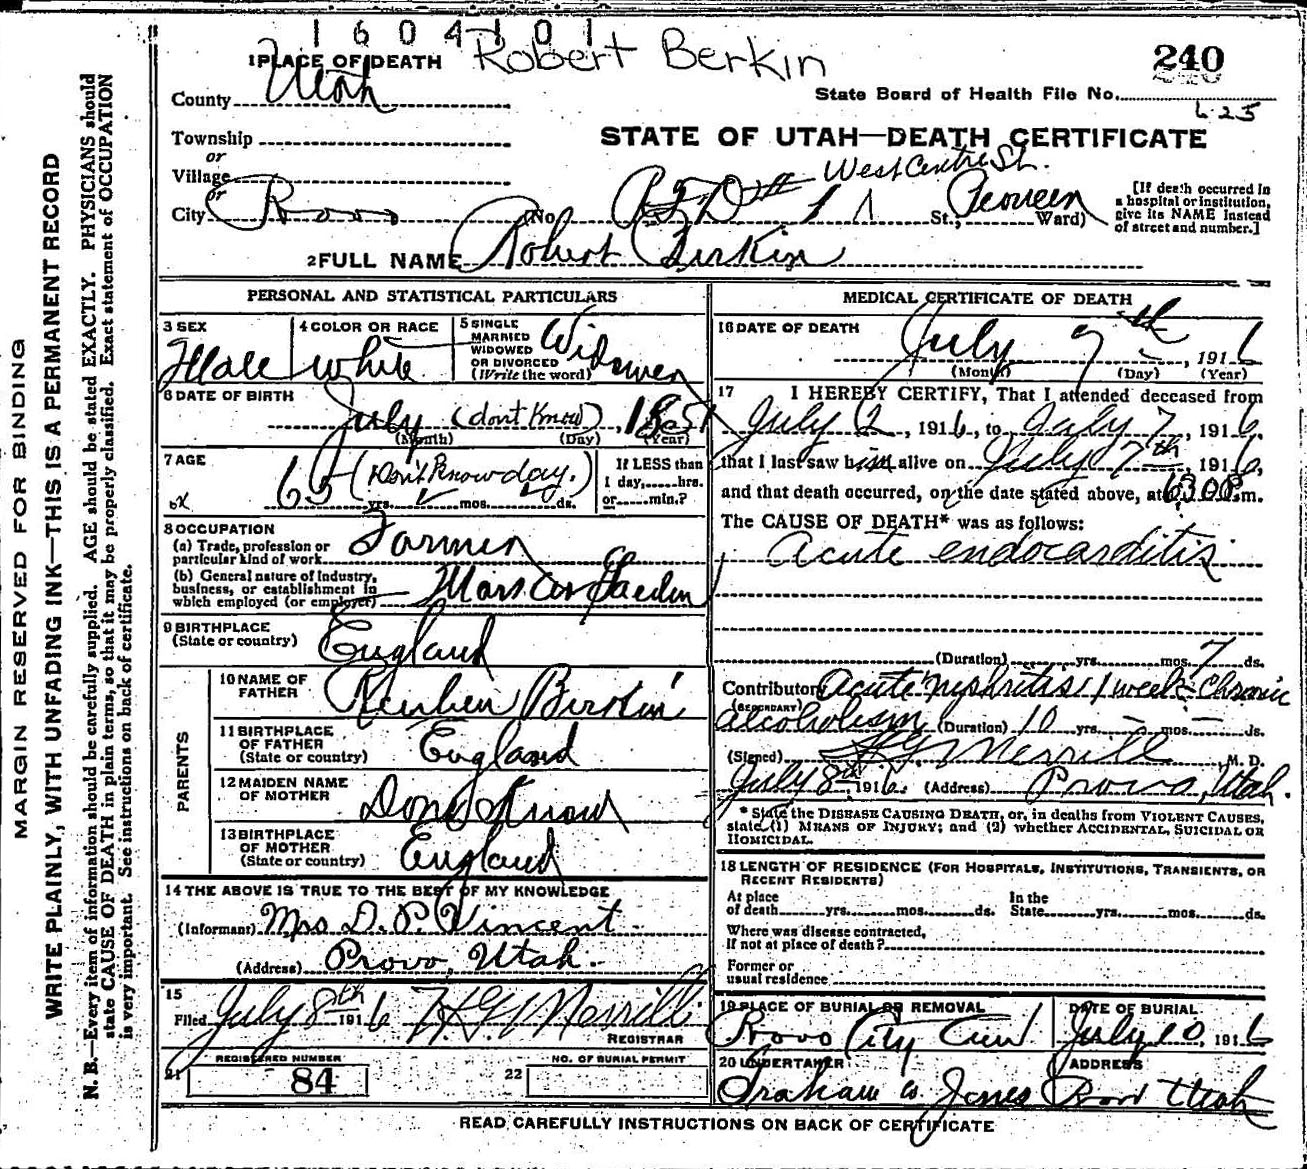 1604101
Robert Berkin
240
1 PLACE OF DEATH
County Utah
State Board of Health File No. 625
Township
or
STATE OF UTAH—DEATH CERTIFICATE
Village
or
West Centre St.
City Provo (No. R F D # 1 St., Pioneer Ward)
[If death occurred in a hospital or institution, give its NAME instead of street and number.]
2 FULL NAME Robert Birkin
PERSONAL AND STATISTICAL PARTICULARS
3 SEX Male
4 COLOR OR RACE white
5 SINGLE MARRIED WIDOWED OR DIVORCED (Write the word) Widower
6 DATE OF BIRTH
July (don't know), 1851
(Month) (Day) (Year)
7 AGE
65 yrs. mos. ds. (Don't Know day.)
If LESS than 1 day,......hrs. or......min.?
8 OCCUPATION
(a) Trade, profession or particular kind of work Farmer
(b) General nature of industry, business, or establishment in which employed (or employer)
9 BIRTHPLACE
(State or country) England
PARENTS
10 NAME OF FATHER Reuben Birkin
11 BIRTHPLACE OF FATHER (State or country) England
12 MAIDEN NAME OF MOTHER Dont Know
13 BIRTHPLACE OF MOTHER (State or country) England
14 THE ABOVE IS TRUE TO THE BEST OF MY KNOWLEDGE
(Informant) Mrs D. P. Vincent
(Address) Provo, Utah.
15
Filed July 8th 1916 Merrill
REGISTRAR
REGISTERED NUMBER
21 84
NO. OF BURIAL PERMIT
22
MEDICAL CERTIFICATE OF DEATH
16 DATE OF DEATH
July 7th, 1916
(Month) (Day) (Year)
17 I HEREBY CERTIFY, That I attended deceased from
July 2, 1916, to July 7, 1916,
that I last saw him alive on July 7th, 1916,
and that death occurred, on the date stated above, at 630 P m.
The CAUSE OF DEATH* was as follows:
Acute endocarditis
(Duration) yrs. mos. 7 ds.
Contributory Acute nephritis 1 week - Chronic
(SECONDARY)
alcoholism (Duration) 10 yrs. - mos. - ds.
(Signed) Merrill M. D.
July 8th, 1916. (Address) Provo, Utah.
* State the DISEASE CAUSING DEATH, or, in deaths from VIOLENT CAUSES,
state (1) MEANS OF INJURY; and (2) whether ACCIDENTAL, SUICIDAL OR
HOMICIDAL.
18 LENGTH OF RESIDENCE (FOR HOSPITALS, INSTITUTIONS, TRANSIENTS, OR
RECENT RESIDENTS)
At place of death......yrs......mos......ds. In the State......yrs......mos......ds.
Where was disease contracted,
if not at place of death?
Former or
usual residence
19 PLACE OF BURIAL OR REMOVAL DATE OF BURIAL
Provo City Cem July 10, 1916
20 UNDERTAKER ADDRESS
Graham & Jones Provo Utah
READ CAREFULLY INSTRUCTIONS ON BACK OF CERTIFICATE
MARGIN RESERVED FOR BINDING
WRITE PLAINLY, WITH UNFADING INK—THIS IS A PERMANENT RECORD
N. B.—Every item of information should be carefully supplied. AGE should be stated EXACTLY. PHYSICIANS should
state CAUSE OF DEATH in plain terms, so that it may be properly classified. Exact statement of OCCUPATION
is very important. See instructions on back of certificate.